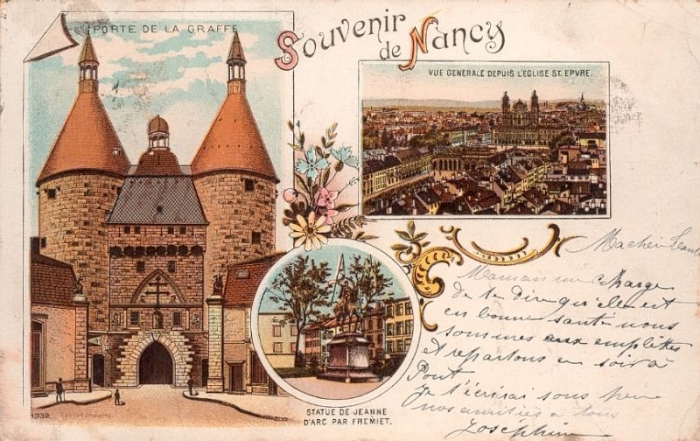 PORTE DE LA GRAFFE
Souvenir
de Nancy
VUE GENERALE DEPUIS L'EGLISE ST. EPVRE.
Ma chère
Maman me charge
de te dire qu'elle est
en bonne santé nous
sommes aux emplettes
et repartons ce soir à
Pont
Je t'écrirai sous peu
nos amitiés à tous
Joséphine
STATUE DE JEANNE
D'ARC PAR FREMIET.
1339